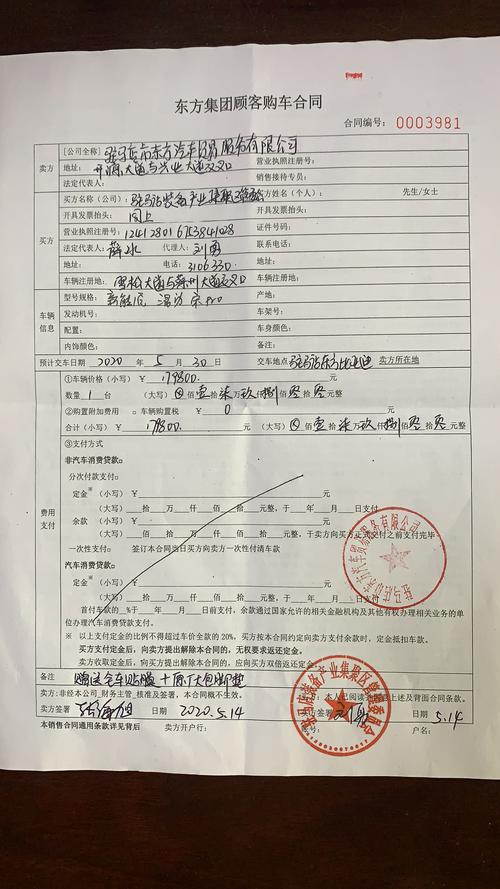 东方集团顾客购车合同
合同编号: 0003981
卖方
[公司名称] 驻马店市东方汽车贸易服务有限公司 营业执照注册号:
地址: 开源大道与兴业大道交叉口 销售接待专员:
法定代表人:
买方
买方名称（公司）: 驻马店装备产业集聚区管委会 买方姓名（个人）: 先生/女士
开具发票抬头: 同上 开具发票抬头:
营业执照注册号: 12412801675384102B 证件号码:
法定代表人: 代理人: 刘勇 联系电话:
地址: 电话: 3106330 地址:
车辆注册地: 雪松大道与 大道交叉口 车辆注册地:
车辆信息
型号规格: 新能源 宋Pro 产地:
发动机号: 车架号:
配置: 车身颜色:
内饰颜色: 备注:
预计交车日期 2020 年 5 月 30 日 交车地点 驻马店东方比亚迪 卖方所在地
费用支付
①车辆价格（小写）¥ 179800 元
数量 1 台 （大写）⊗佰壹拾柒万玖仟捌佰零拾零元整
②购置附加费用 □车辆购置税 ¥ 0 元
合计（小写）¥ 179800 元（大写）⊗佰壹拾柒万玖仟捌佰零拾零元整
③支付方式
非汽车消费贷款□
分次付款支付□
定金※（小写）¥ 元
（大写） 拾 万 仟 佰 拾 元整,于 年 月 日支付
余款 （小写）¥ 元
（大写） 佰 拾 万 仟 佰 拾 元整,于卖方向买方正式交付之前支付完毕
一次性支付□ 签订本合同当日买方向卖方一次性付清车款
汽车消费贷款□
定金※（小写）¥ 元
（大写） 佰 拾 万 仟 佰 拾 元整,于 年 月 日支付
首付车款的 %于 年 月 日前支付，余款通过国家允许的相关金融机构及其他有权办理相关业务的单位办理汽车消费贷款支付。
※ 以上支付定金的比例不得超过车价全款的20%，买方按本合同约定向卖方支付余款时，定金抵扣车款。
买方支付定金后，向卖方提出解除本合同的，无权要求返还定金。
卖方收取定金后，向买方提出解除本合同的，应向买方双倍返还定金。
备注 赠送全车贴膜+原厂大包脚垫
卖方:非经本公司 财务主管 核准及签署，本合同概不生效。 方: 本人已阅读 上述及背面合同条款。
卖方签署 日期 2020.5.14 签署 日期 5.14
本销售合同通用条款详见背后 卖方开户行: 账号: 户名:
驻马店市东方汽车贸易服务有限公司
驻马店装备产业集聚区管理委员会